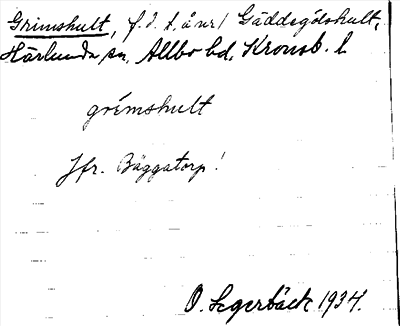 Grimshult, f.d. t. å nr 1 Gäddegölshult,
Härlunda sn, Allbo hd, Kronob. l.
grímshult
Jfr. Bäggatorp!
O. Segerbäck 1934.